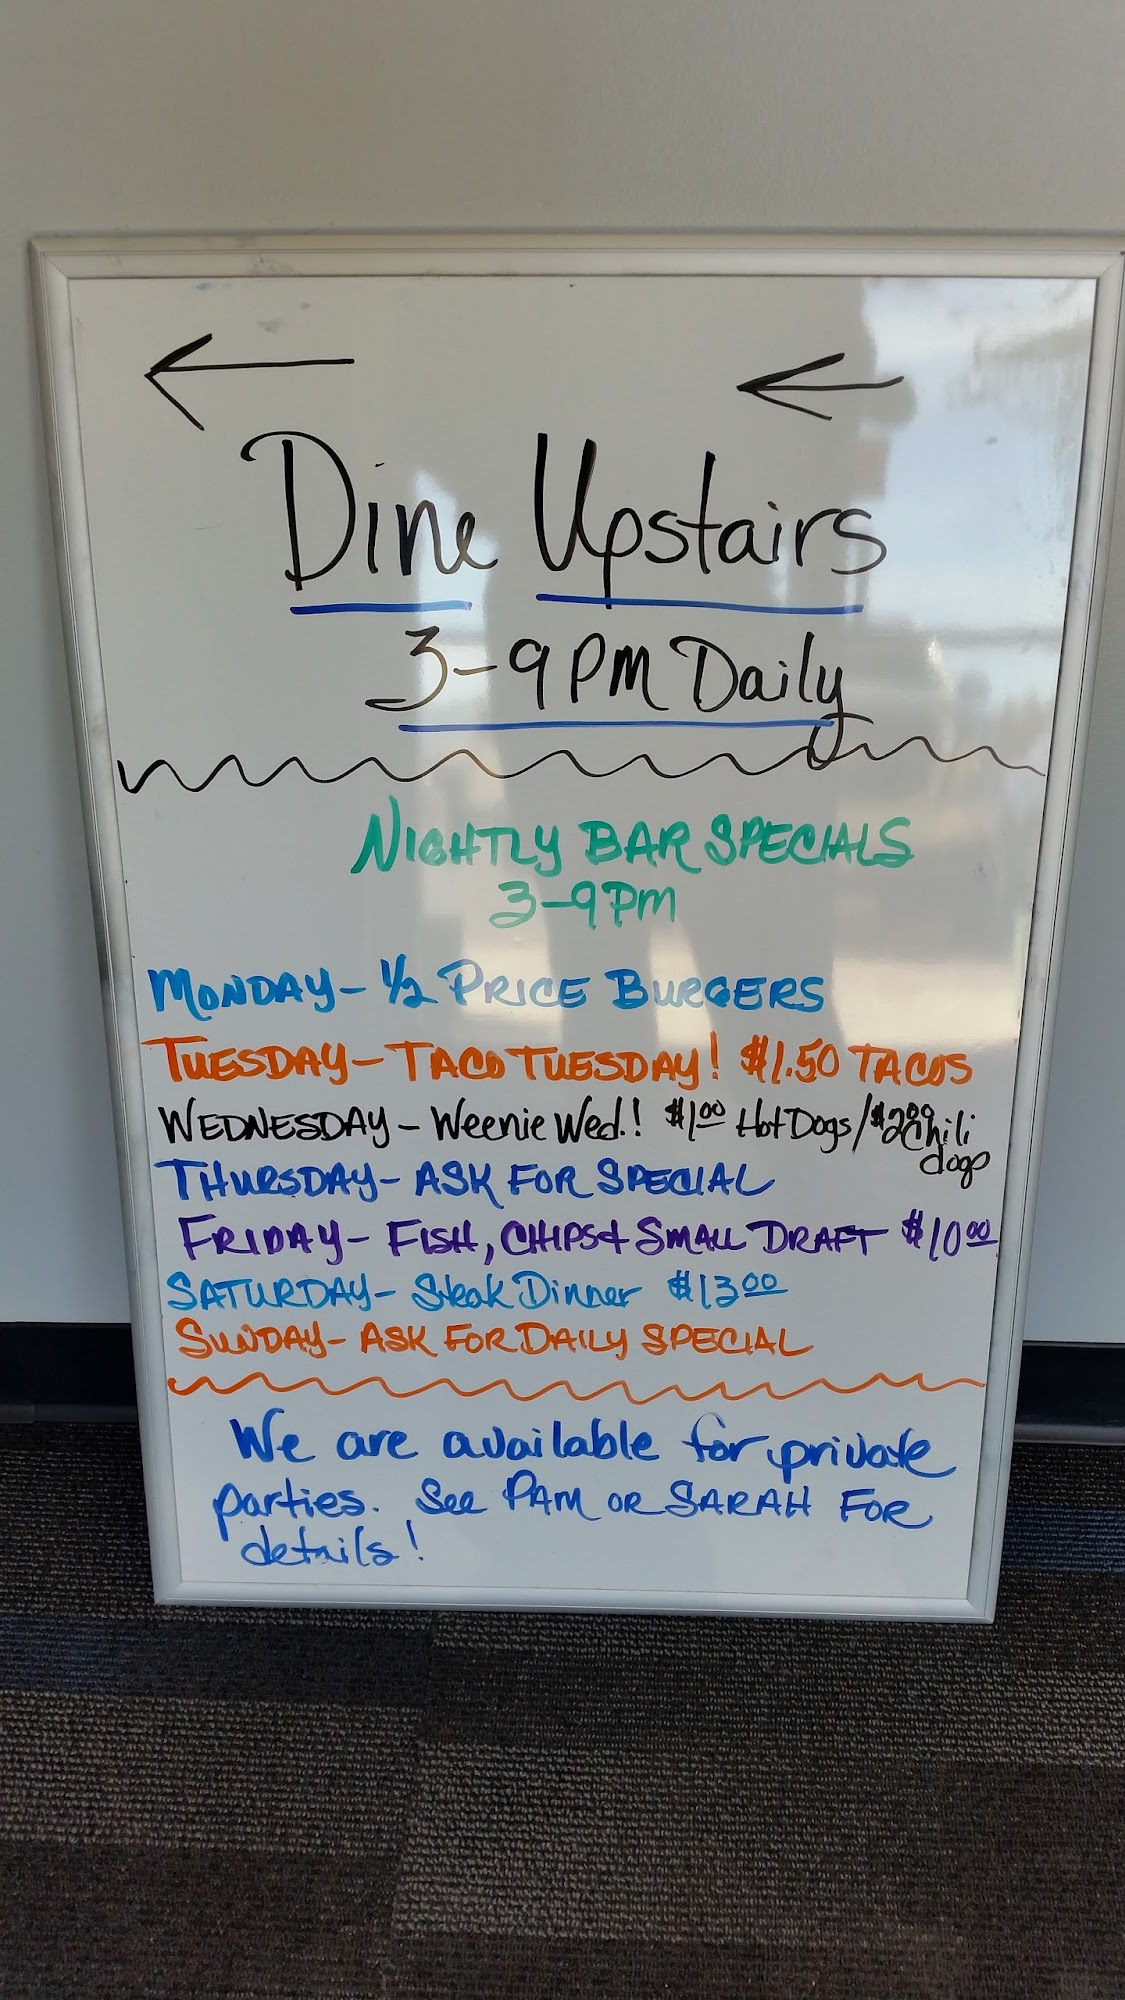 Dine Upstairs
3-9 PM Daily
NIGHTLY BAR SPECIALS
3-9PM
MONDAY - 1/2 PRICE BURGERS
TUESDAY - TACO TUESDAY! $1.50 TACOS
WEDNESDAY - Weenie Wed.! $1.00 Hot Dogs/$2.00 Chili
dogs
THURSDAY - ASK FOR SPECIAL
FRIDAY - FISH, CHIPS & SMALL DRAFT $10.00
SATURDAY - Steak Dinner $13.00
SUNDAY - ASK FOR DAILY SPECIAL
We are available for private
parties. See PAM OR SARAH FOR
details!